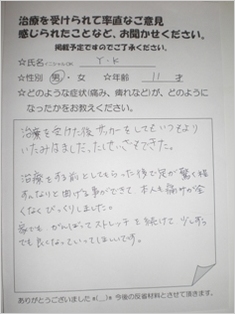 治療を受けられて率直なご意見
感じられたことなど、お聞かせください。
掲載予定ですのでご了承ください。
☆氏名 Y・K
☆性別 男・女 ☆年齢 11才
☆どのような症状(痛み、痺れなど)が、どのように
なったかをお教えください。
治療を受けた後サッカーをしてもいつもより
いたみはました。
治療をする前としてもらった後で足が驚く程
すんなりと曲げる事ができて、本人も痛みが全く
なくびっくりしました。
家でも、がんばってストレッチを続けて少しずつ
でも良くなっていってほしいです。
ありがとうございました 今後の反省材料とさせて頂きます。